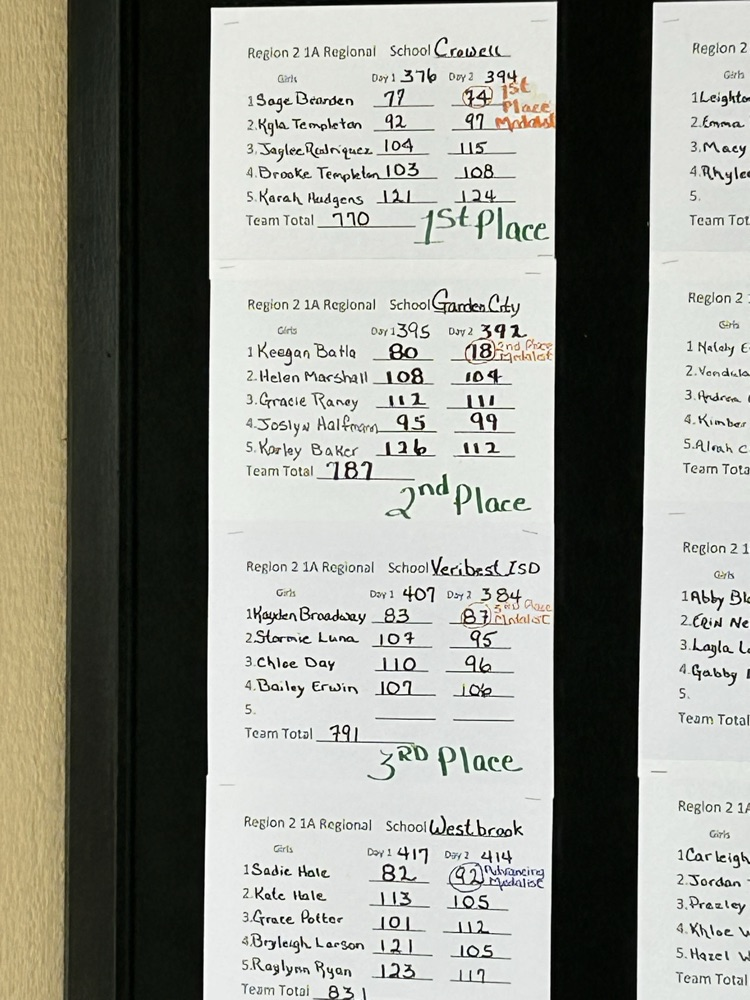 Region 2 1A Regional School Crowell
Girls Day 1 376 Day 2 394
1 Sage Bearden 77 74 1st Place Medalist
2. Kyla Templeton 92 97
3. Jaylee Rodriquez 104 115
4. Brooke Templeton 103 108
5. Karah Hudgens 121 124
Team Total 770 1st Place
Region 2 1A Regional School Garden City
Girls Day 1 395 Day 2 392
1 Keegan Batla 80 78 2nd Place Medalist
2. Helen Marshall 108 104
3. Gracie Raney 112 111
4. Joslyn Halfmann 95 99
5. Karley Baker 126 112
Team Total 787
2nd Place
Region 2 1A Regional School Veribest ISD
Girls Day 1 407 Day 2 384
1 Kayden Broadway 83 87 3RD Place Medalist
2. Stormie Luna 107 95
3. Chloe Day 110 96
4. Bailey Erwin 107 106
5.
Team Total 791
3RD Place
Region 2 1A Regional School Westbrook
Girls Day 1 417 Day 2 414
1 Sadie Hale 82 92 Advancing Medalist
2. Kate Hale 113 105
3. Grace Potter 101 112
4. Bryleigh Larson 121 105
5. Raylynn Ryan 123 117
Team Total 831
Region 2
Girls
1 Leighto
2. Emma
3. Macy
4. Rhyle
5.
Team Tot
Region 2
Girls
3. Andrea
4. Kimber
Team Tota
Region 2 1
Girls
1 Abby Bl
2. Erin Ne
3. Layla L
4. Gabby
5.
Team Total
Region 2 1A
Girls
1 Carleigh
2. Jordan
3. Prezley
4. Khloe W
5. Hazel W
Team Total